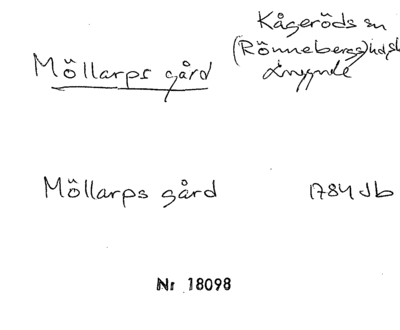 Kågeröds sn
(Rönnebergs)
Möllarps gård
Möllarps gård 1784 Jb
Nr 18098